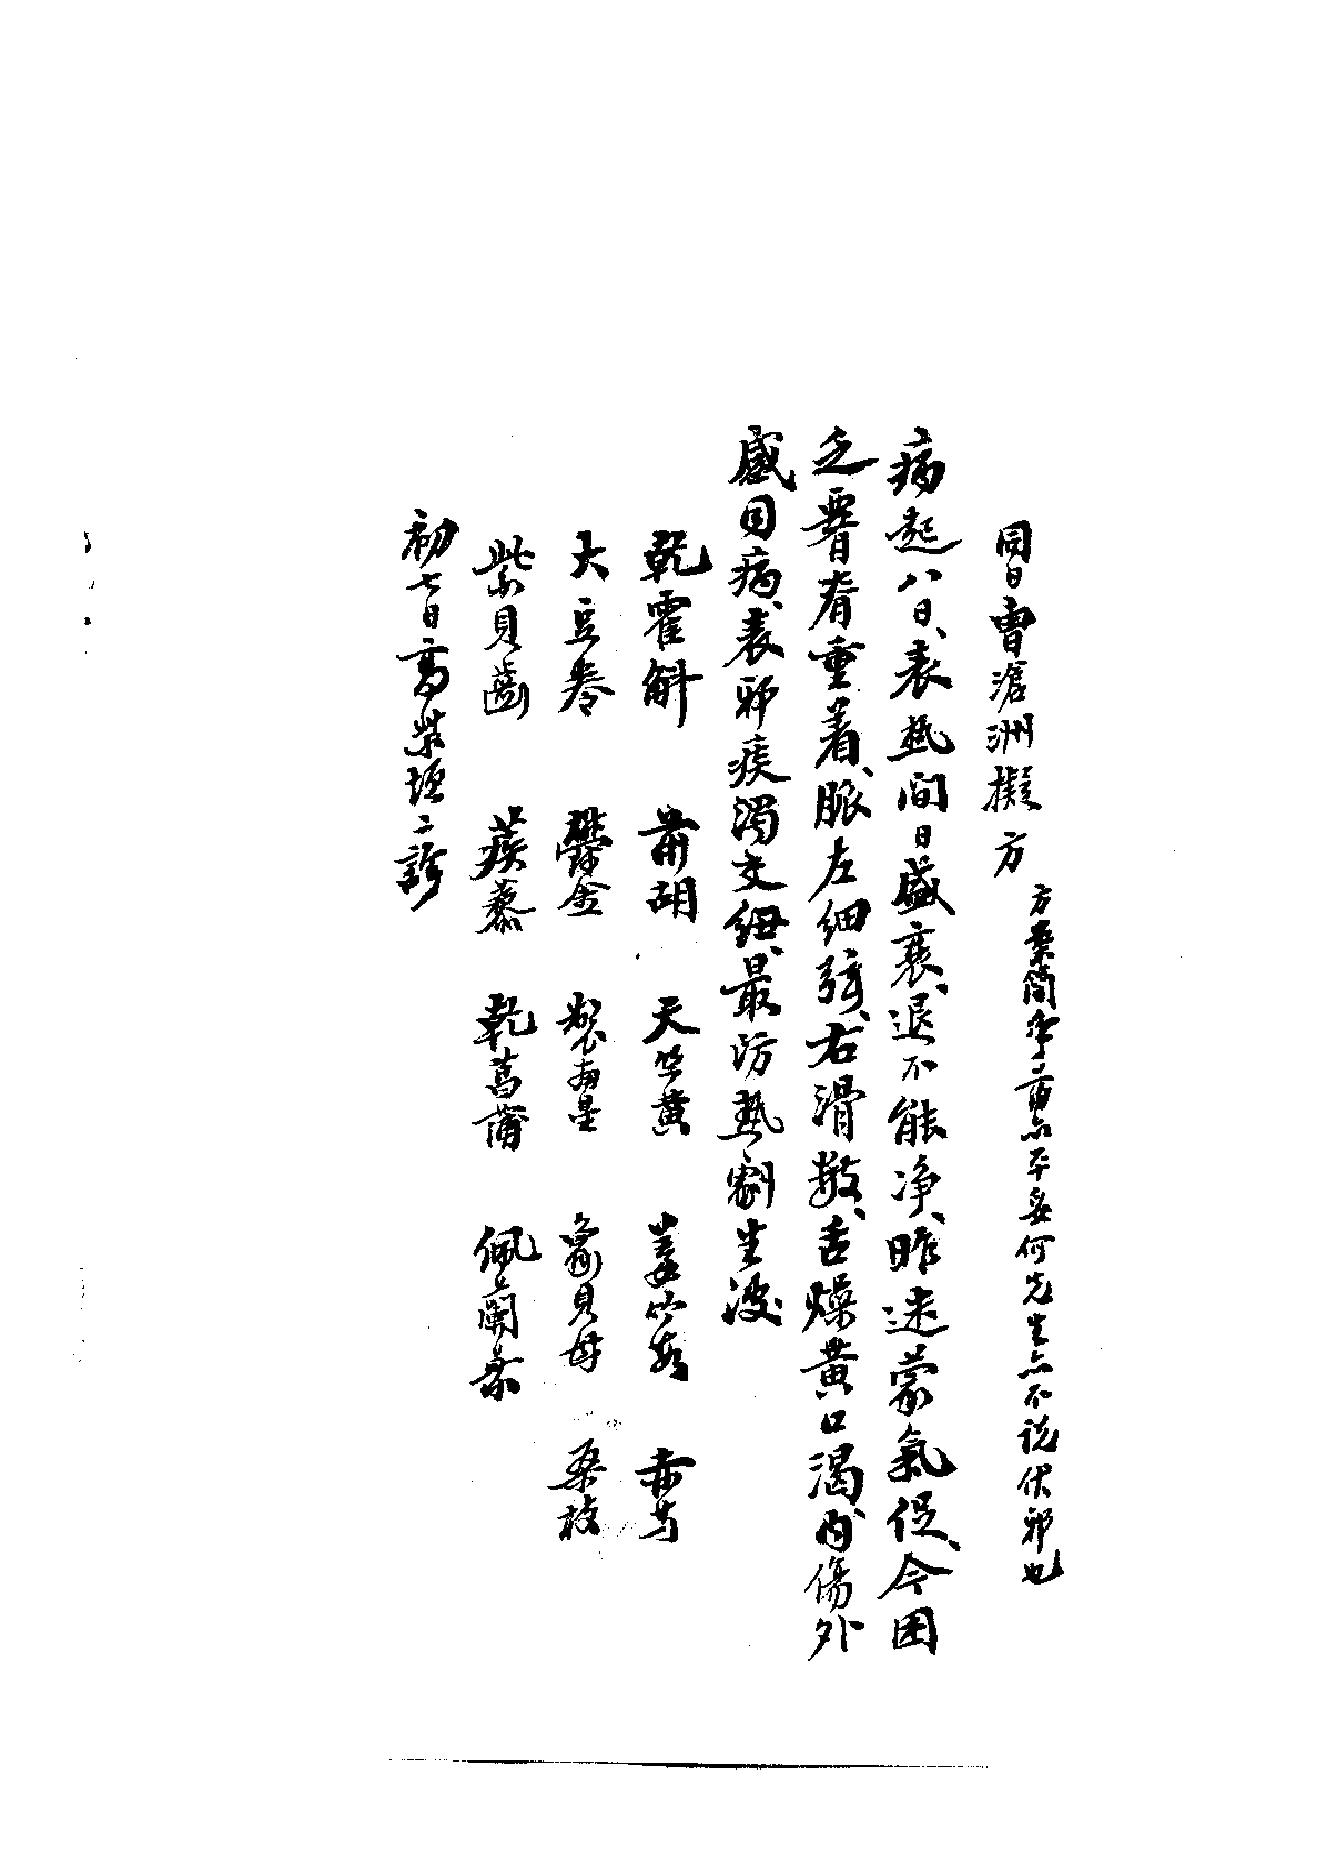 同日曹滄洲擬方 方案簡净藥亦平妥何先生亦不說伏邪也
病起八日、表熱間日盛衰、退不能净、昨迷蒙氣促、今困
乏、脊重着、脈左細弦、右滑數、舌燥黃口渴、内傷外
感同病、表邪痰濁交組、最防熱劇生波
乾霍斛 前胡 天竺黃 姜竹茹 赤芍
大豆卷 鬱金 製南星 象貝母 桑枝
紫貝齒 蒺藜 乾菖蒲 佩蘭葉
初七日高紫垣二診